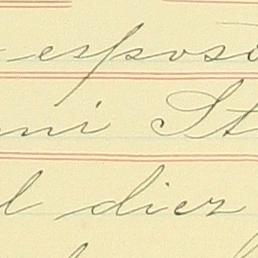 esposi
ni St
l diez